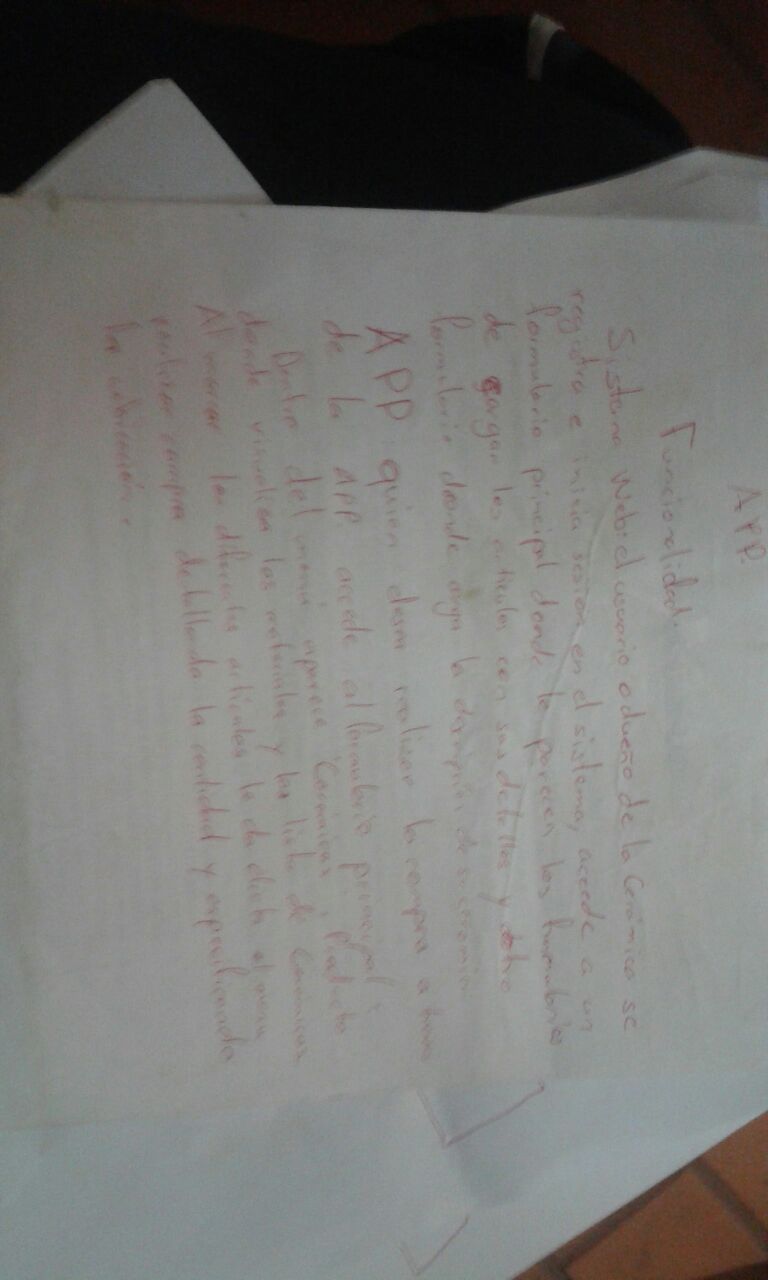 APP.
Funcionalidad.
Sistema Web: el usuario o dueño de la Cerámica se
registra e inicia sesión en el sistema, accede a un
formulario principal donde le parecen los formularios
de cargar los artículos con sus detalles y otro
formulario donde carga la de su
APP: quien desea realizar la compra a
de la APP. accede al formulario principal.
Dentro del menú aparece Cerámicas, Producto
donde visualiza los materiales y la lista de Cerámicas
Al marcar los diferentes artículos le da click al menú
realizar compra detallando la cantidad y especificando
la